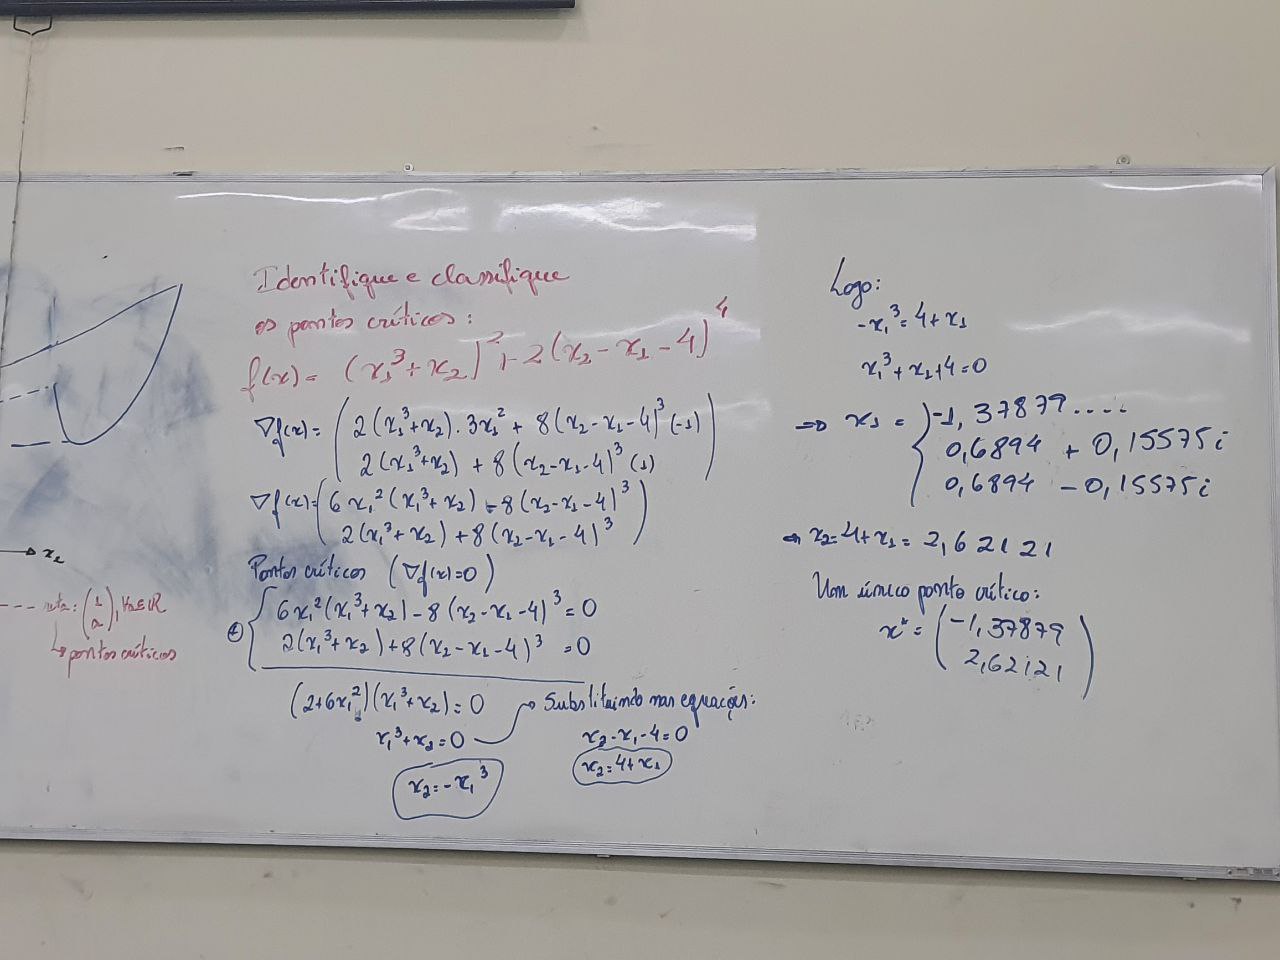 x₂
--- reta: (1 a), ∀a∈ℝ
↳ pontos críticos
Identifique e classifique
os pontos críticos:
f(x) = (x₁³+x₂)² + 2(x₂-x₁-4)⁴
∇f(x) = ( 2(x₁³+x₂).3x₁² + 8(x₂-x₁-4)³(-1)
2(x₁³+x₂) + 8(x₂-x₁-4)³(1) )
∇f(x) = ( 6x₁²(x₁³+x₂) - 8(x₂-x₁-4)³
2(x₁³+x₂) + 8(x₂-x₁-4)³ )
Pontos críticos (∇f(x)=0)
⊕ { 6x₁²(x₁³+x₂) - 8(x₂-x₁-4)³ = 0
2(x₁³+x₂) + 8(x₂-x₁-4)³ = 0
(2+6x₁²)(x₁³+x₂) = 0
x₁³+x₂=0
x₂=-x₁³
Substituindo nas equações:
x₂-x₁-4=0
x₂=4+x₁
Logo:
-x₁³=4+x₁
x₁³+x₁+4=0
⇒ x₁ = { -1,37879....
0,6894 + 0,15575i
0,6894 - 0,15575i
⇒ x₂=4+x₁ = 2,62121
Um único ponto crítico:
x* = ( -1,37879
2,62121 )